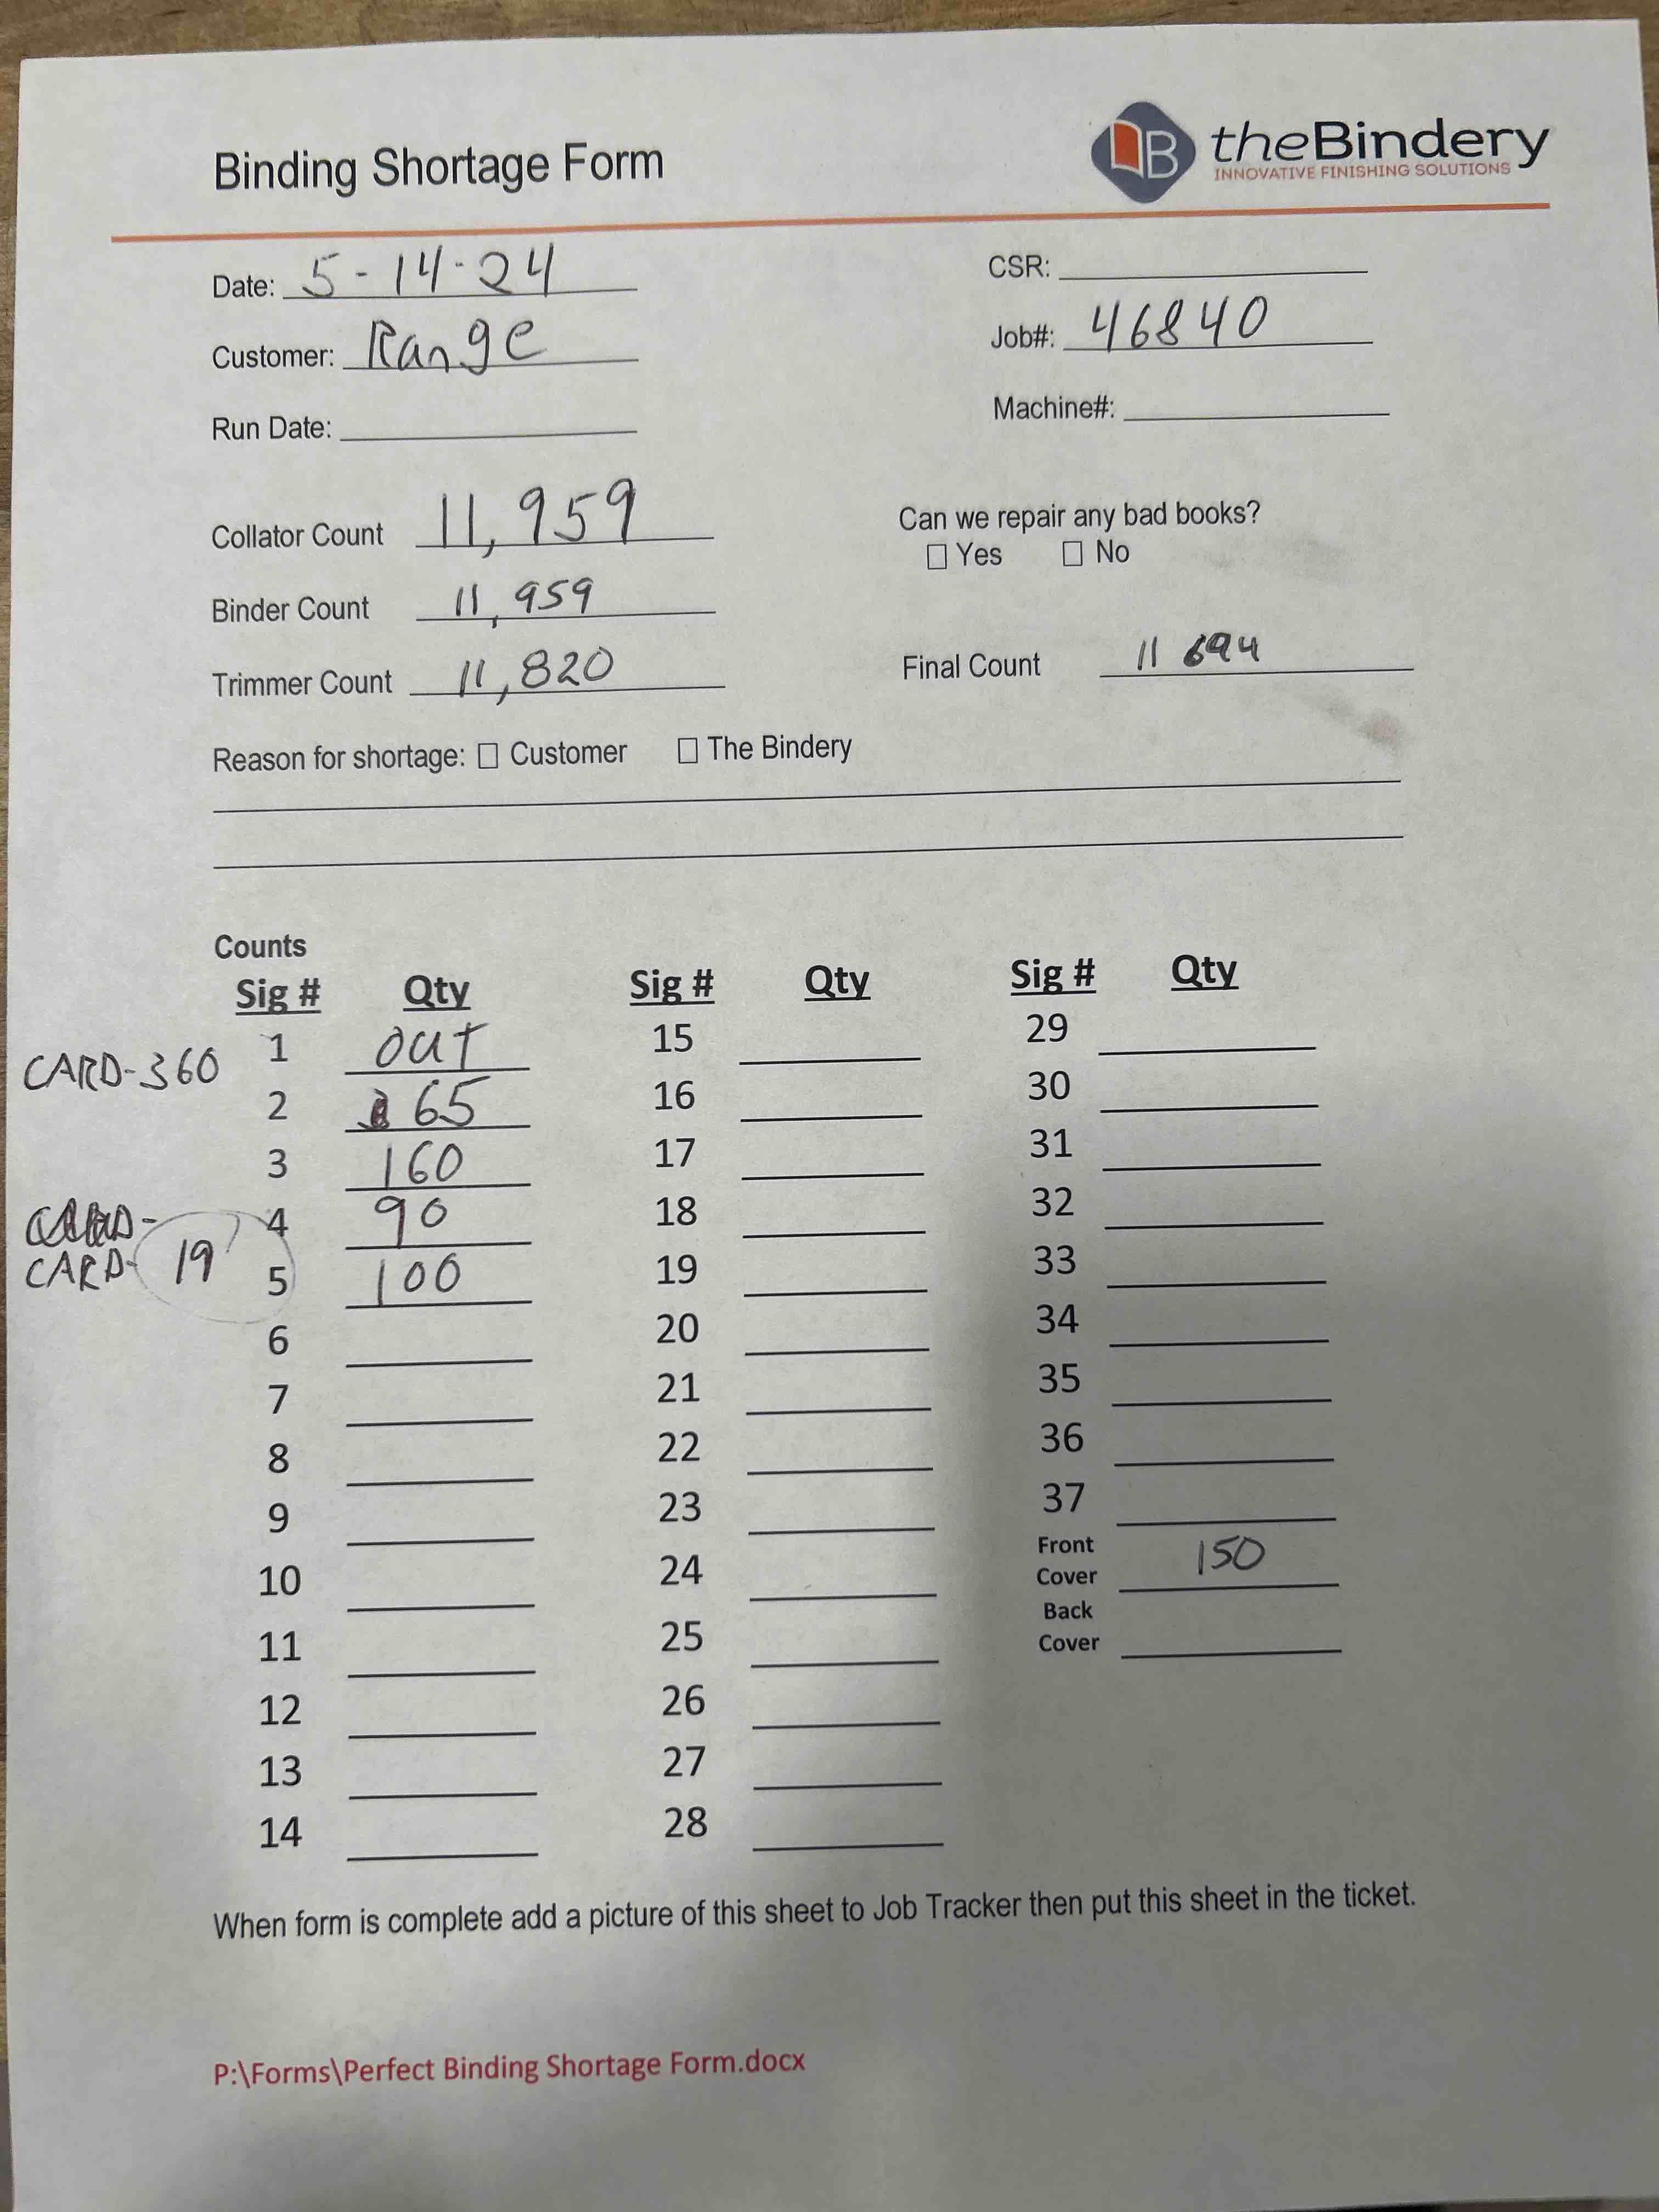 Binding Shortage Form
theBindery
INNOVATIVE FINISHING SOLUTIONS
Date: 5-14-24
CSR:
Customer: Range
Job#: 46840
Run Date:
Machine#:
Collator Count 11,959
Can we repair any bad books?
☐ Yes ☐ No
Binder Count 11,959
Trimmer Count 11,820
Final Count 11 694
Reason for shortage: ☐ Customer ☐ The Bindery
Counts
Sig # Qty Sig # Qty Sig # Qty
CARD-360 1 OUT 15 29
2 65 16 30
3 160 17 31
4 90 18 32
CARD- 19 5 100 19 33
6 20 34
7 21 35
8 22 36
9 23 37
Front Cover 150
10 24
Back Cover
11 25
12 26
13 27
14 28
When form is complete add a picture of this sheet to Job Tracker then put this sheet in the ticket.
P:\Forms\Perfect Binding Shortage Form.docx